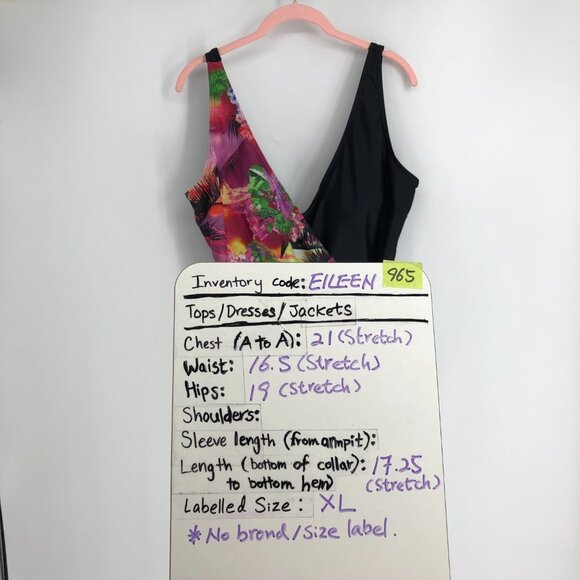 Inventory code: EILEEN 965
Tops/Dresses/Jackets
Chest (A to A): 21 (Stretch)
Waist: 16.5 (Stretch)
Hips: 19 (Stretch)
Shoulders:
Sleeve length (from armpit):
Length (bottom of collar): 17.25
to bottom hem) (Stretch)
Labelled Size: XL
* No brand/Size label.